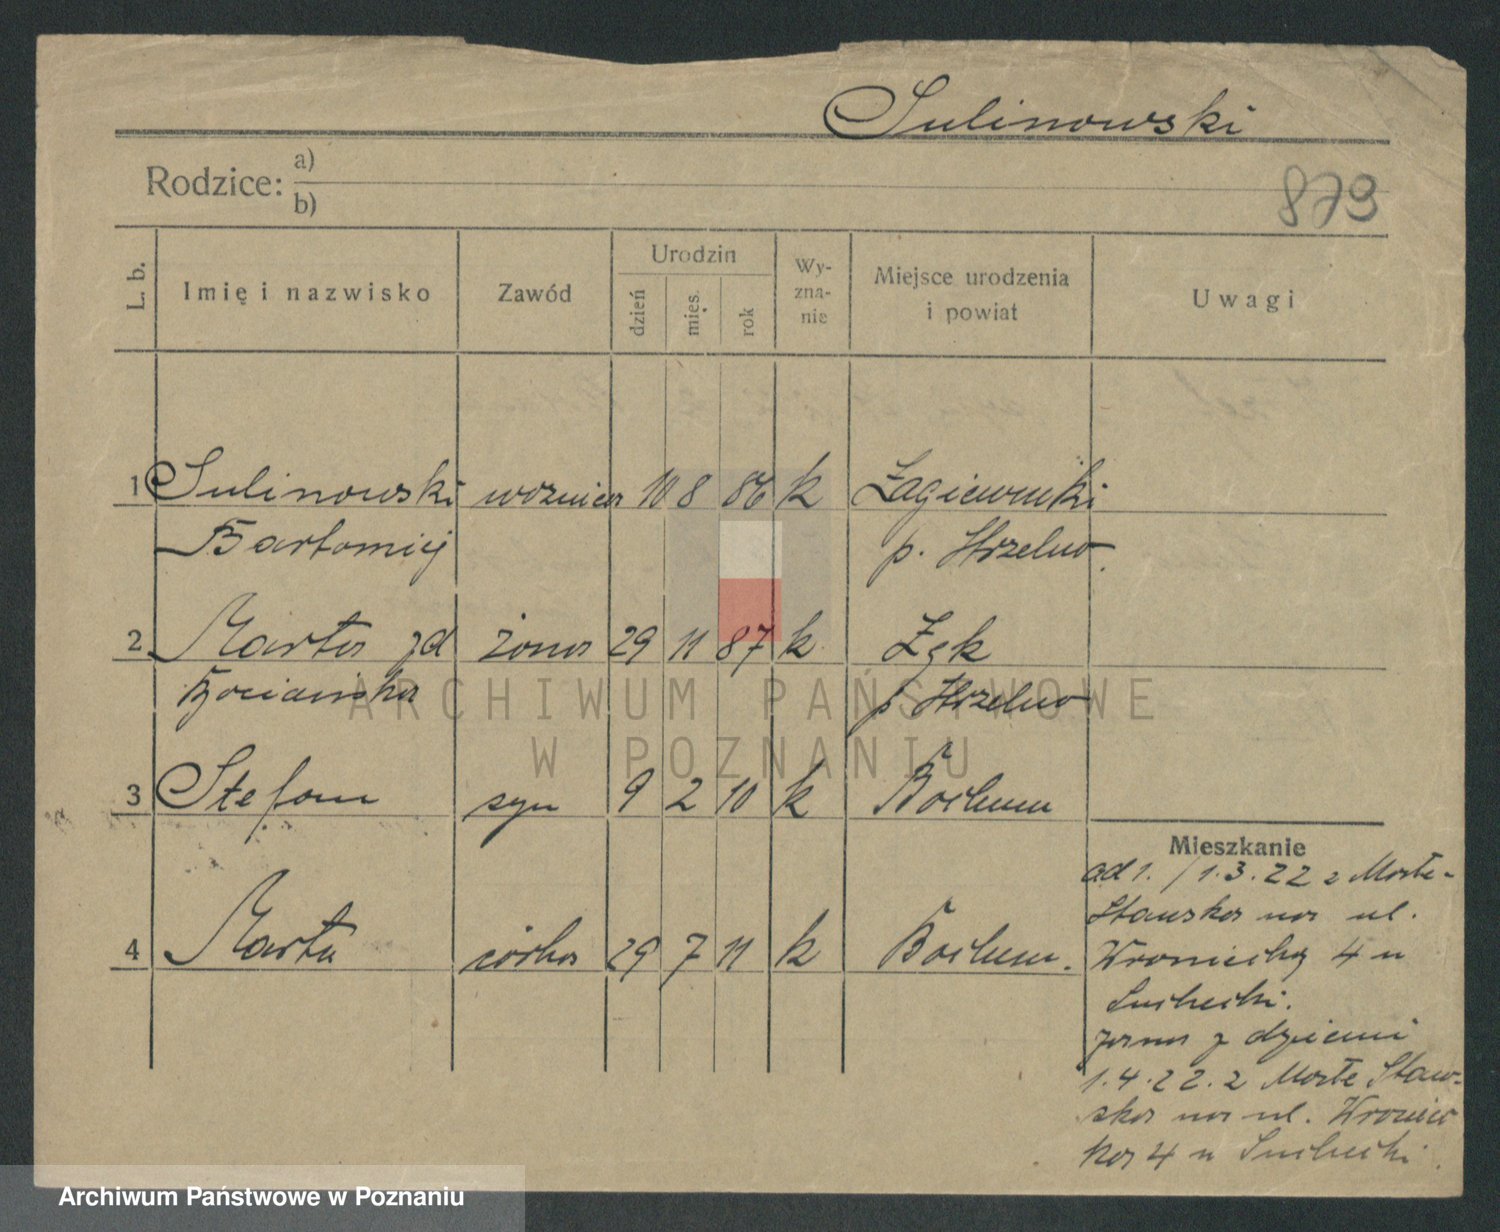 Sulinowski
Rodzice: a)
b)
879
L. b. Imię i nazwisko Zawód Urodzin dzień mies. rok Wyznanie Miejsce urodzenia i powiat Uwagi
1 Sulinowski woznica 10 8 86 k Łagiewniki
Bartomiej p. Strzelno.
2 Marta zd żona 29 11 87 k Łąk
p Strzelno
ARCHIWUM PAŃSTWOWE
W POZNANIU
3 Stefan syn 9 2 10 k Bochum
Mieszkanie
4 Marta córka 29 7 11 k Bochum.
ad 1. / 1.3.22 z Małe-
na ul.
4 u
Suchecki.
żona z dziećmi
1.4.22. z Małe
na ul.
4 u Suchecki.
Archiwum Państwowe w Poznaniu